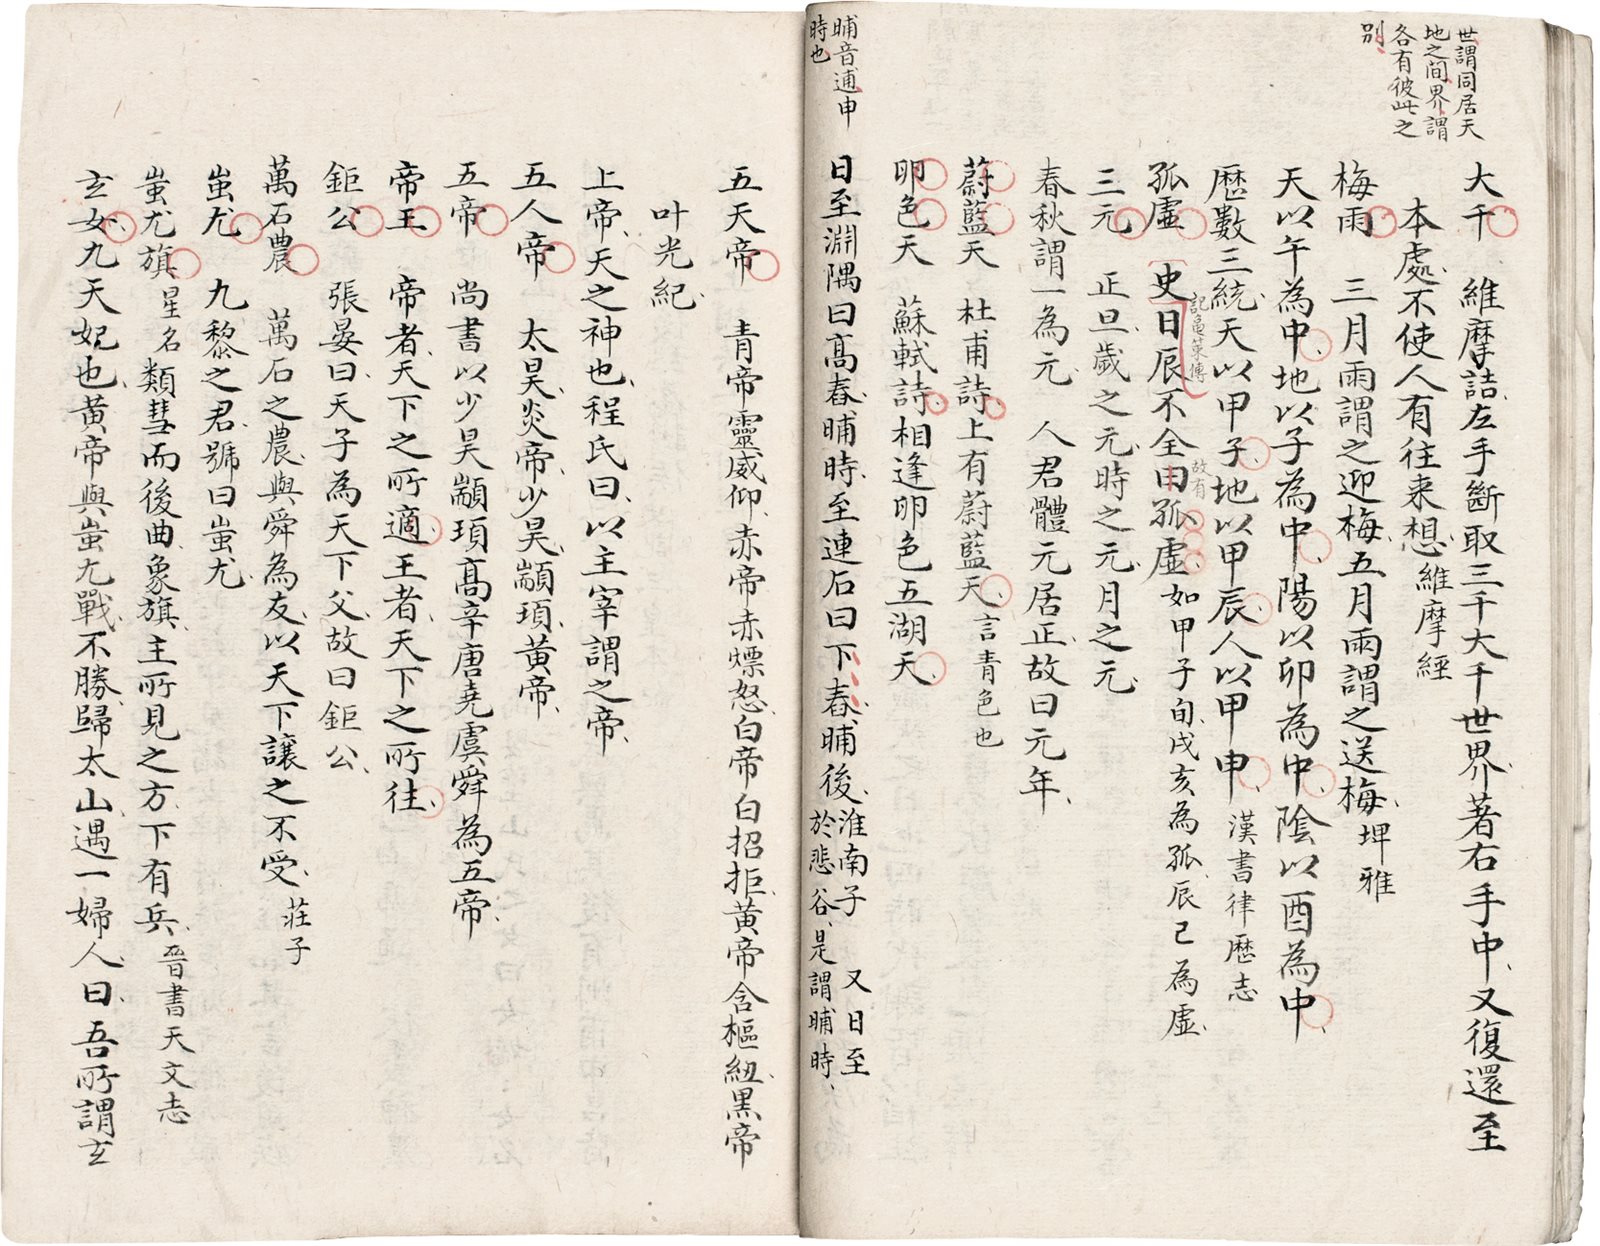 世謂同居天
地之間界謂
各有彼此之
別
大千　維摩詰左手斷取三千大千世界著右手中又復還至
本處不使人有往来想維摩經
梅雨　三月雨謂之迎梅五月雨謂之送梅埤雅
天以午為中地以子為中陽以卯為中陰以酉為中
歴數三統天以甲子地以甲辰人以甲申漢書律歴志
孤虛　史日辰不全由孤虛如甲子旬戌亥為孤辰巳為虛
記龜策傳
故有
三元　正旦歲之元時之元月之元
春秋謂一為元　人君體元居正故曰元年
蔚藍天　杜甫詩上有蔚藍天言青色也
卵色天　蘇軾詩相逢卵色五湖天
日至淵隅曰高舂晡時至連石曰下舂晡後淮南子　又日至
於悲谷是謂晡時
晡音逋申
時也
五天帝　青帝靈威仰赤帝赤熛怒白帝白招拒黃帝含樞紐黒帝
叶光紀
上帝天之神也程氏曰以主宰謂之帝
五人帝　太昊炎帝少昊顓頊黃帝
五帝　尚書以少昊顓頊高辛唐堯虞舜為五帝
帝王　帝者天下之所適王者天下之所往
鉅公　張晏曰天子為天下父故曰鉅公
萬石農　萬石之農與舜為友以天下讓之不受莊子
蚩尤　九黎之君號曰蚩尤
蚩尤旗星名類彗而後曲象旗主所見之方下有兵晉書天文志
玄女九天妃也黃帝與蚩尤戰不勝歸太山遇一婦人曰吾所謂玄